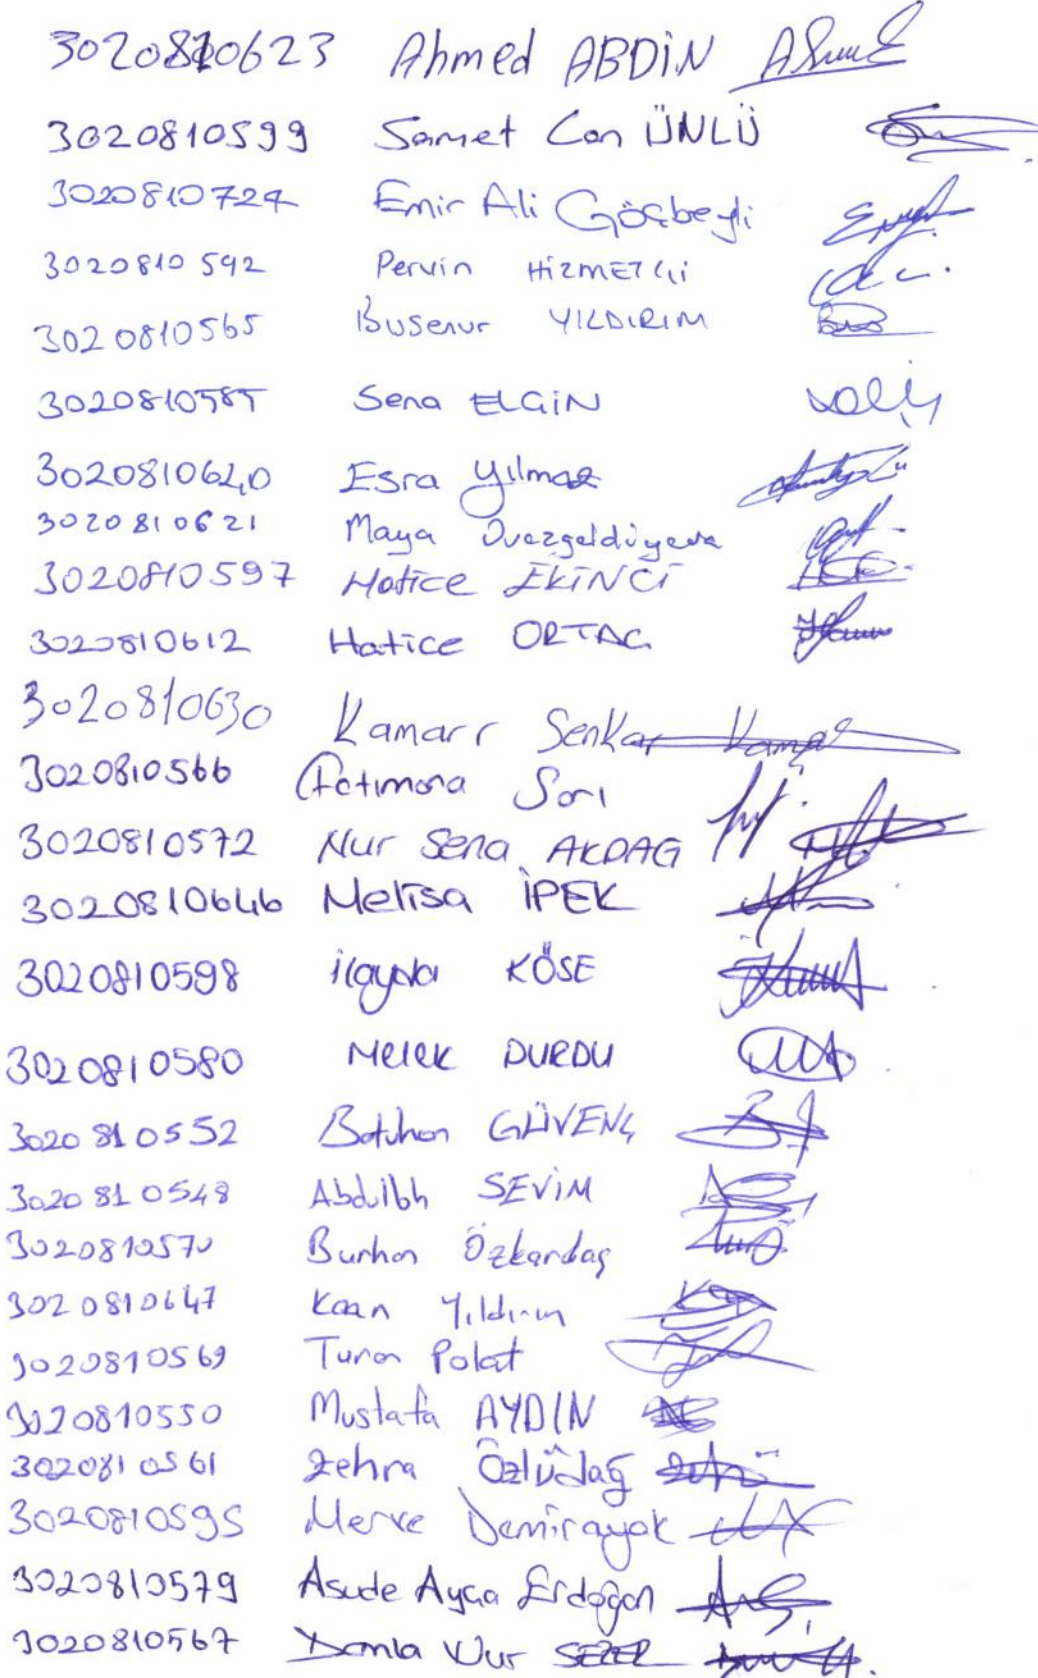 3020810623 Ahmed ABDİN
3020810599 Samet Can ÜNLÜ
3020810724 Emir Ali Göçbeyli
3020810592 Pervin HİZMETÇİ
3020810565 Busenur YILDIRIM
3020810585 Sena ELGİN
3020810640 Esra Yılmaz
3020810621 Maya Ovezgeldiyeva
3020810597 Hatice EKİNCİ
3020810612 Hatice ORTAÇ
3020810630 Kamarr Senkar
3020810566 Sarı
3020810572 Nur Sena AKDAG
3020810646 Melisa İPEK
3020810598 İlayda KÖSE
3020810580 Melek DURDU
3020810552 Batuhan GÜVENÇ
3020810548 SEVİM
3020810570 Burhan Özkardaş
3020810647 Kaan Yıldırım
3020810569 Turan Polat
3020810550 Mustafa AYDIN
3020810561 Zehra Özlüdağ
3020810595 Merve Demirayak
3020810579 Asude Ayça Erdoğan
3020810567 Damla Nur SEZER